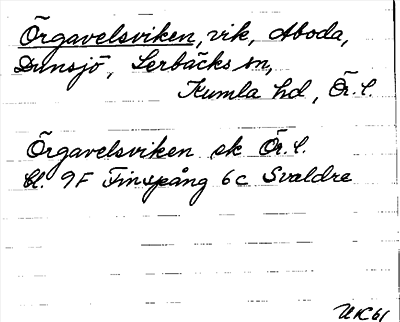 Örgavelsviken, vik, Aboda,
Dunsjö, Lerbäcks sn,
Kumla hd, Ör. l.
Örgavelsviken ek Ör. l.
bl. 9F Finspång 6c Svaldre
UK61